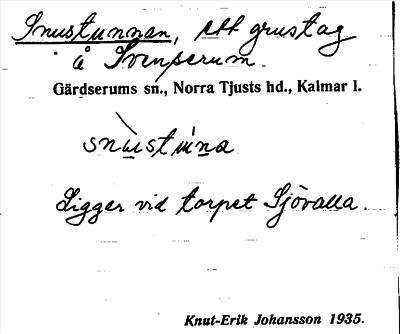 Snustunnan, ett grustag
å Svenserum.
Gärdserums sn., Norra Tjusts hd., Kalmar l.
snùstúna
Ligger vid torpet Sjövalla.
Knut-Erik Johansson 1935.